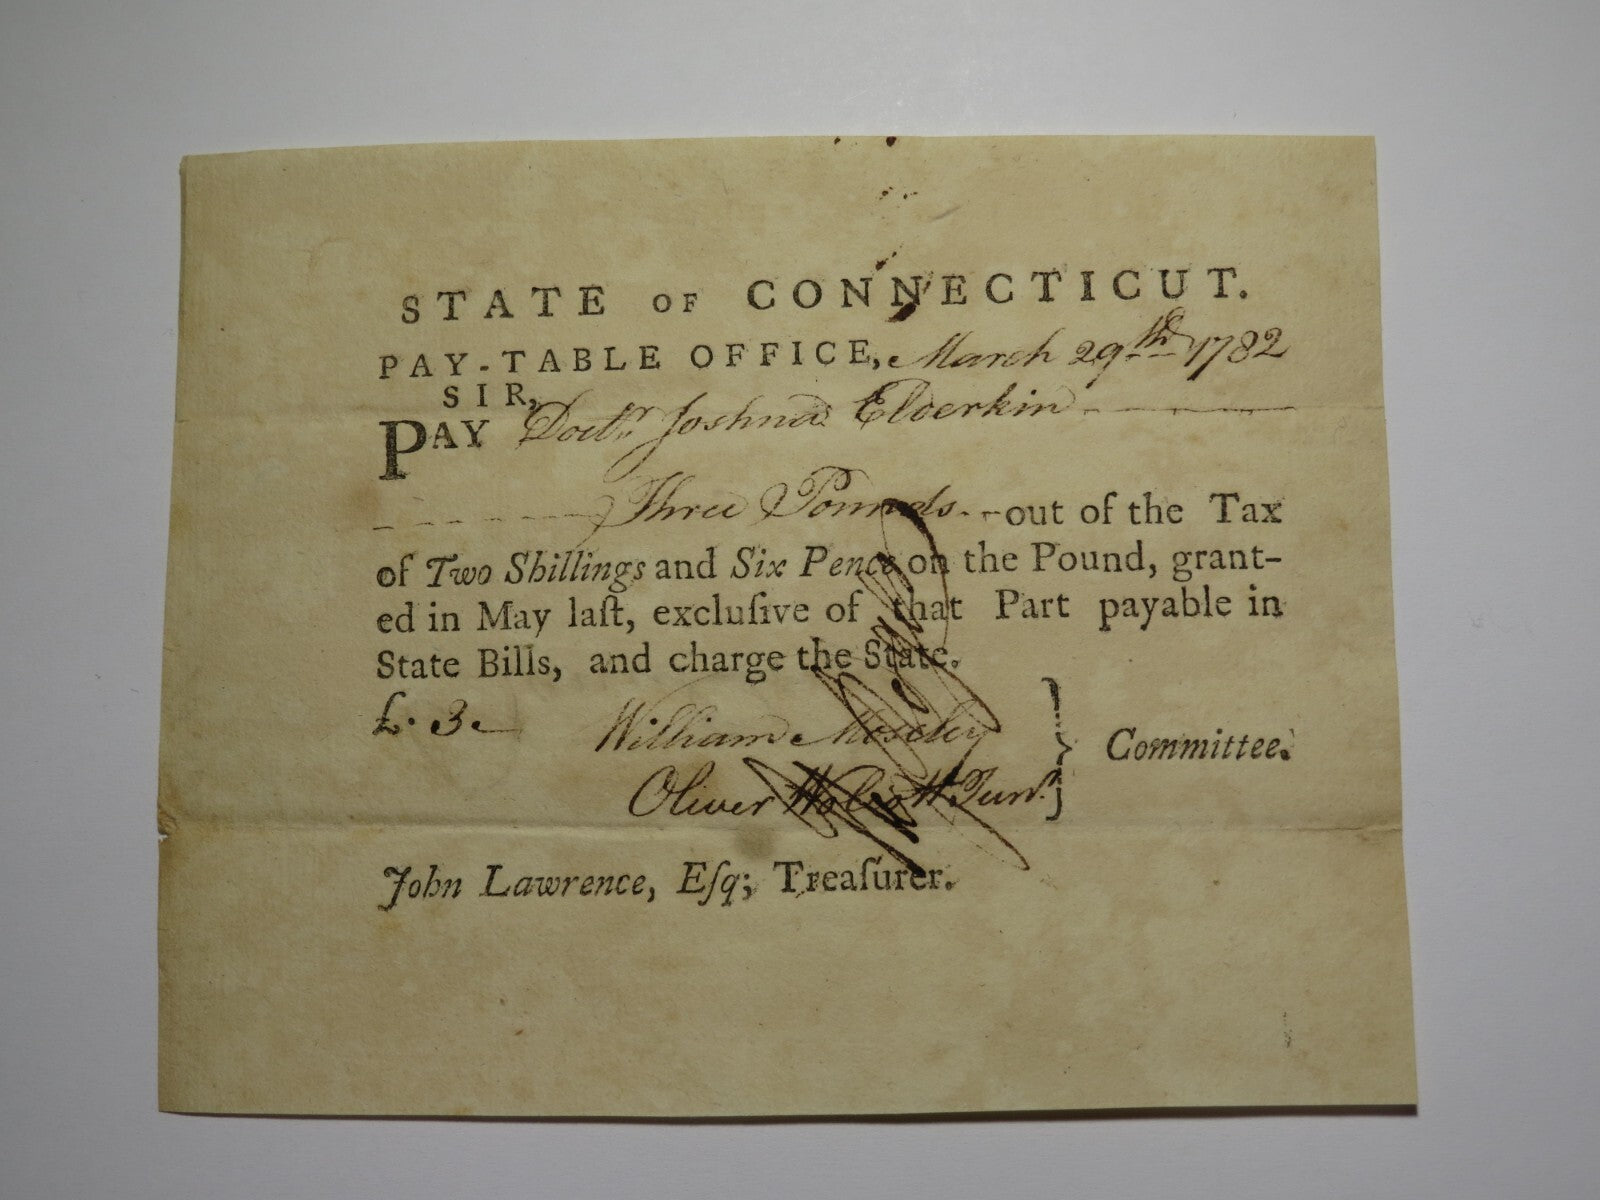 STATE OF CONNECTICUT.
PAY-TABLE OFFICE, March 29th 1782
SIR,
PAY Doctr. Joshua Elderkin
Three Pounds out of the Tax
of Two Shillings and Six Pence on the Pound, grant-
ed in May laſt, excluſive of that Part payable in
State Bills, and charge the State.
£. 3. William Moseley
Oliver Wolcott Junr. } Committee.
John Lawrence, Eſq; Treaſurer.